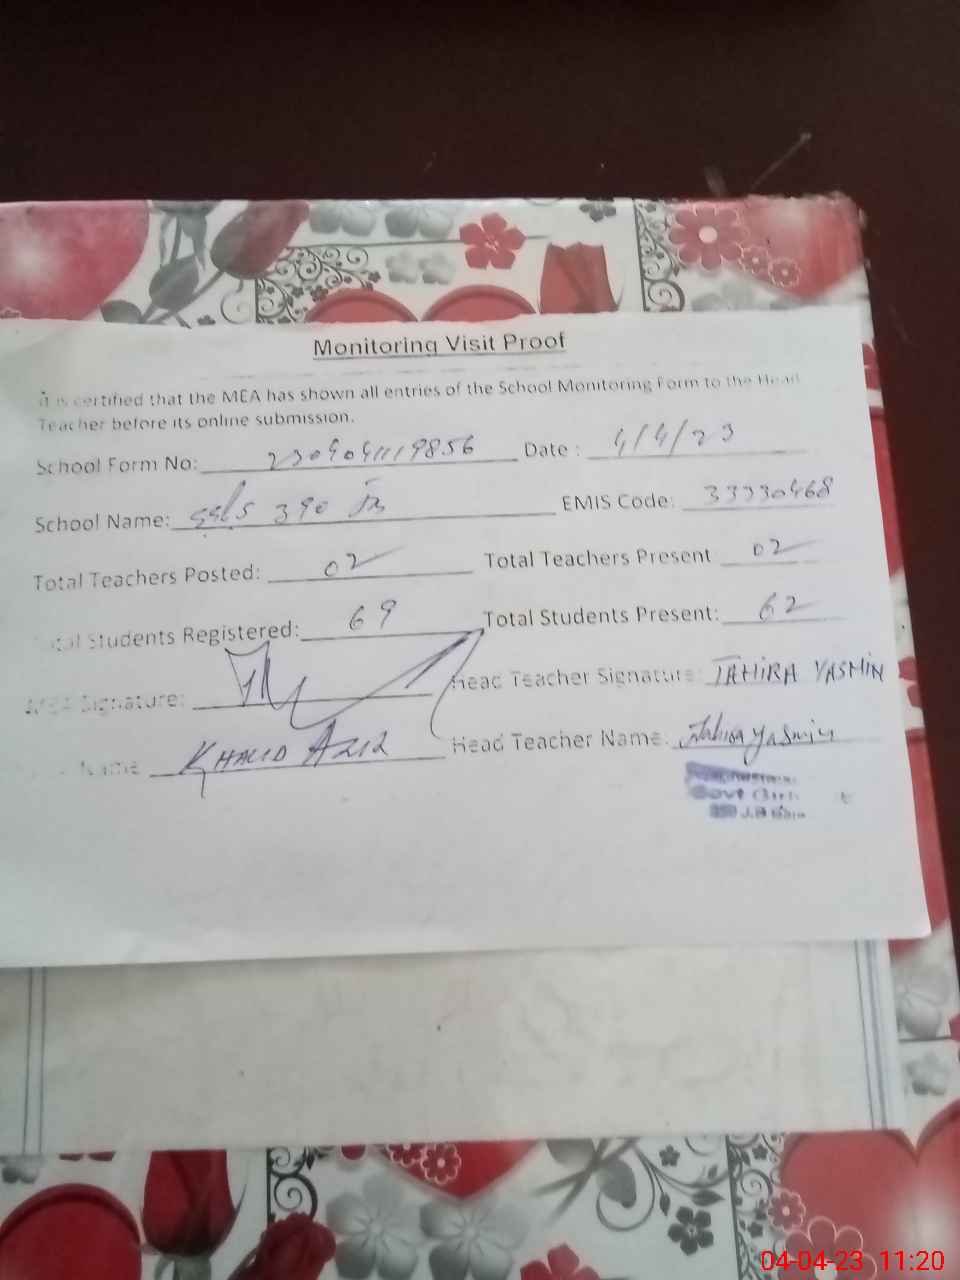 Monitoring Visit Proof
it is certified that the MEA has shown all entries of the School Monitoring Form to the Head
Teacher before its online submission.
School Form No: Date : 4/4/23
School Name: 390 EMIS Code: 33330468
Total Teachers Posted: 02 Total Teachers Present 02
Total Students Registered: 69 Total Students Present: 62
MEA Signature: Head Teacher Signature: TAHIRA YASMIN
Name KHALID AZIZ Head Teacher Name: Tahira Yasmin
Govt
J.B
04-04-23 11:20